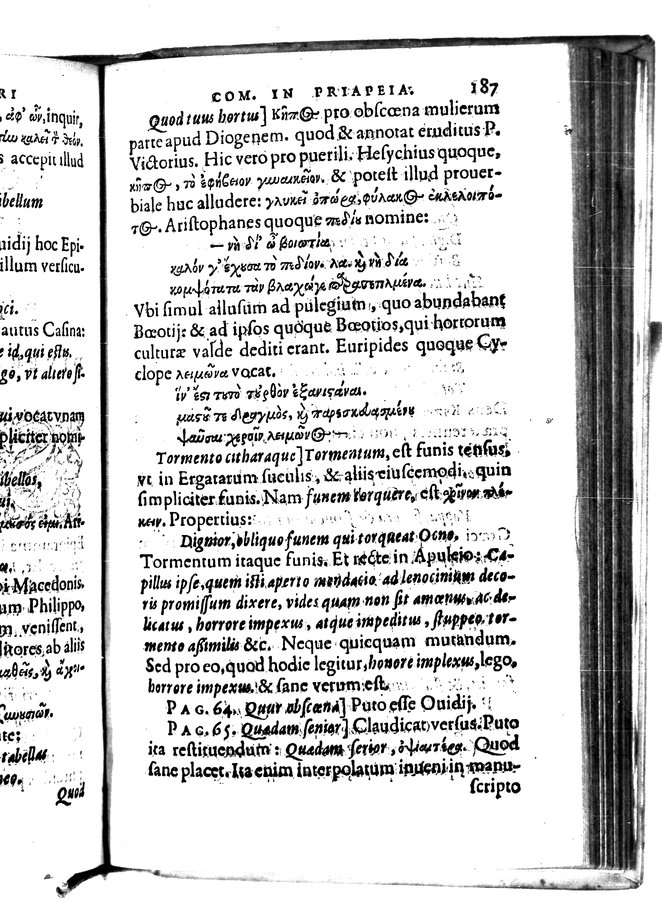 RI
, ἀφ' ὧν, inquit,
s accepit illud
ibellum
uidij hoc Epi-
illum versicu-
ci.
autus Casina:
e id, qui estis.
go, vt altero si-
ui vocat vnam
pliciter nomi-
ibellos,
ui.
Att-
oi Macedonis.
um Philippo,
m venissent,
ditores ab aliis
te:
tabellas
neo.
Quod
COM. IN PRIAPEIA. 187
Quod tuus hortus] Κῆπος pro obscœna mulierum
parte apud Diogenem. quod & annotat eruditus P.
Victorius. Hic vero pro puerili. Hesychius quoque,
κῆπος, τὸ ἐφήβειον γυναικεῖον. & potest illud prouer-
biale huc alludere: γλυκεῖ ὀπώρᾳ, φύλακος ἐκλελοιπό-
τος. Aristophanes quoque πεδίον nomine:
— νὴ δί' ὦ βοιωτία
καλόν γ' ἔχουσα τὸ πεδίον. λα. κỳ νὴ δία
κομψότατα τὰν βλαχώ γε παρατετιλμένα.
Vbi simul allusum ad pulegium, quo abundabant
Bœotij: & ad ipsos quoque Bœotios, qui hortorum
culturæ valde dediti erant. Euripides quoque Cy-
clope λειμῶνα vocat.
ἵν' ἔστι τουτὸ τοὐρθὸν ἐξανιστάναι.
μαστοῦ τε δραγμὸς, κỳ παρεσκευασμένου
ψαῦσαι χεροῖν λειμῶνος
Tormento citharaque] Tormentum, est funis tensus,
vt in Ergatarum suculis, & aliis eiuscemodi, quin
simpliciter funis. Nam funem torquere, est χοῖνον πλέ-
κειν. Propertius:
Dignior, obliquo funem qui torqueat Ocno.
Tormentum itaque funis. Et recte in Apuleio: Ca-
pillus ipse, quem isti aperto mendacio ad lenocinium deco-
ris promissum dixere, vides quam non sit amœnus, ac de-
licatus, horrore impexus, atque impeditus, stuppeo tor-
mento assimilis &c. Neque quicquam mutandum.
Sed pro eo, quod hodie legitur, honore implexus, lego,
horrore impexus. & sane verum est.
PAG. 64. Quur obscœna] Puto esse Ouidij.
PAG. 65. Quadam senior] Claudicat versus. Puto
ita restituendum: Quadam serior, ὀψιαιτέρα. Quod
sane placet. Ita enim interpolatum inueni in manu-
scripto